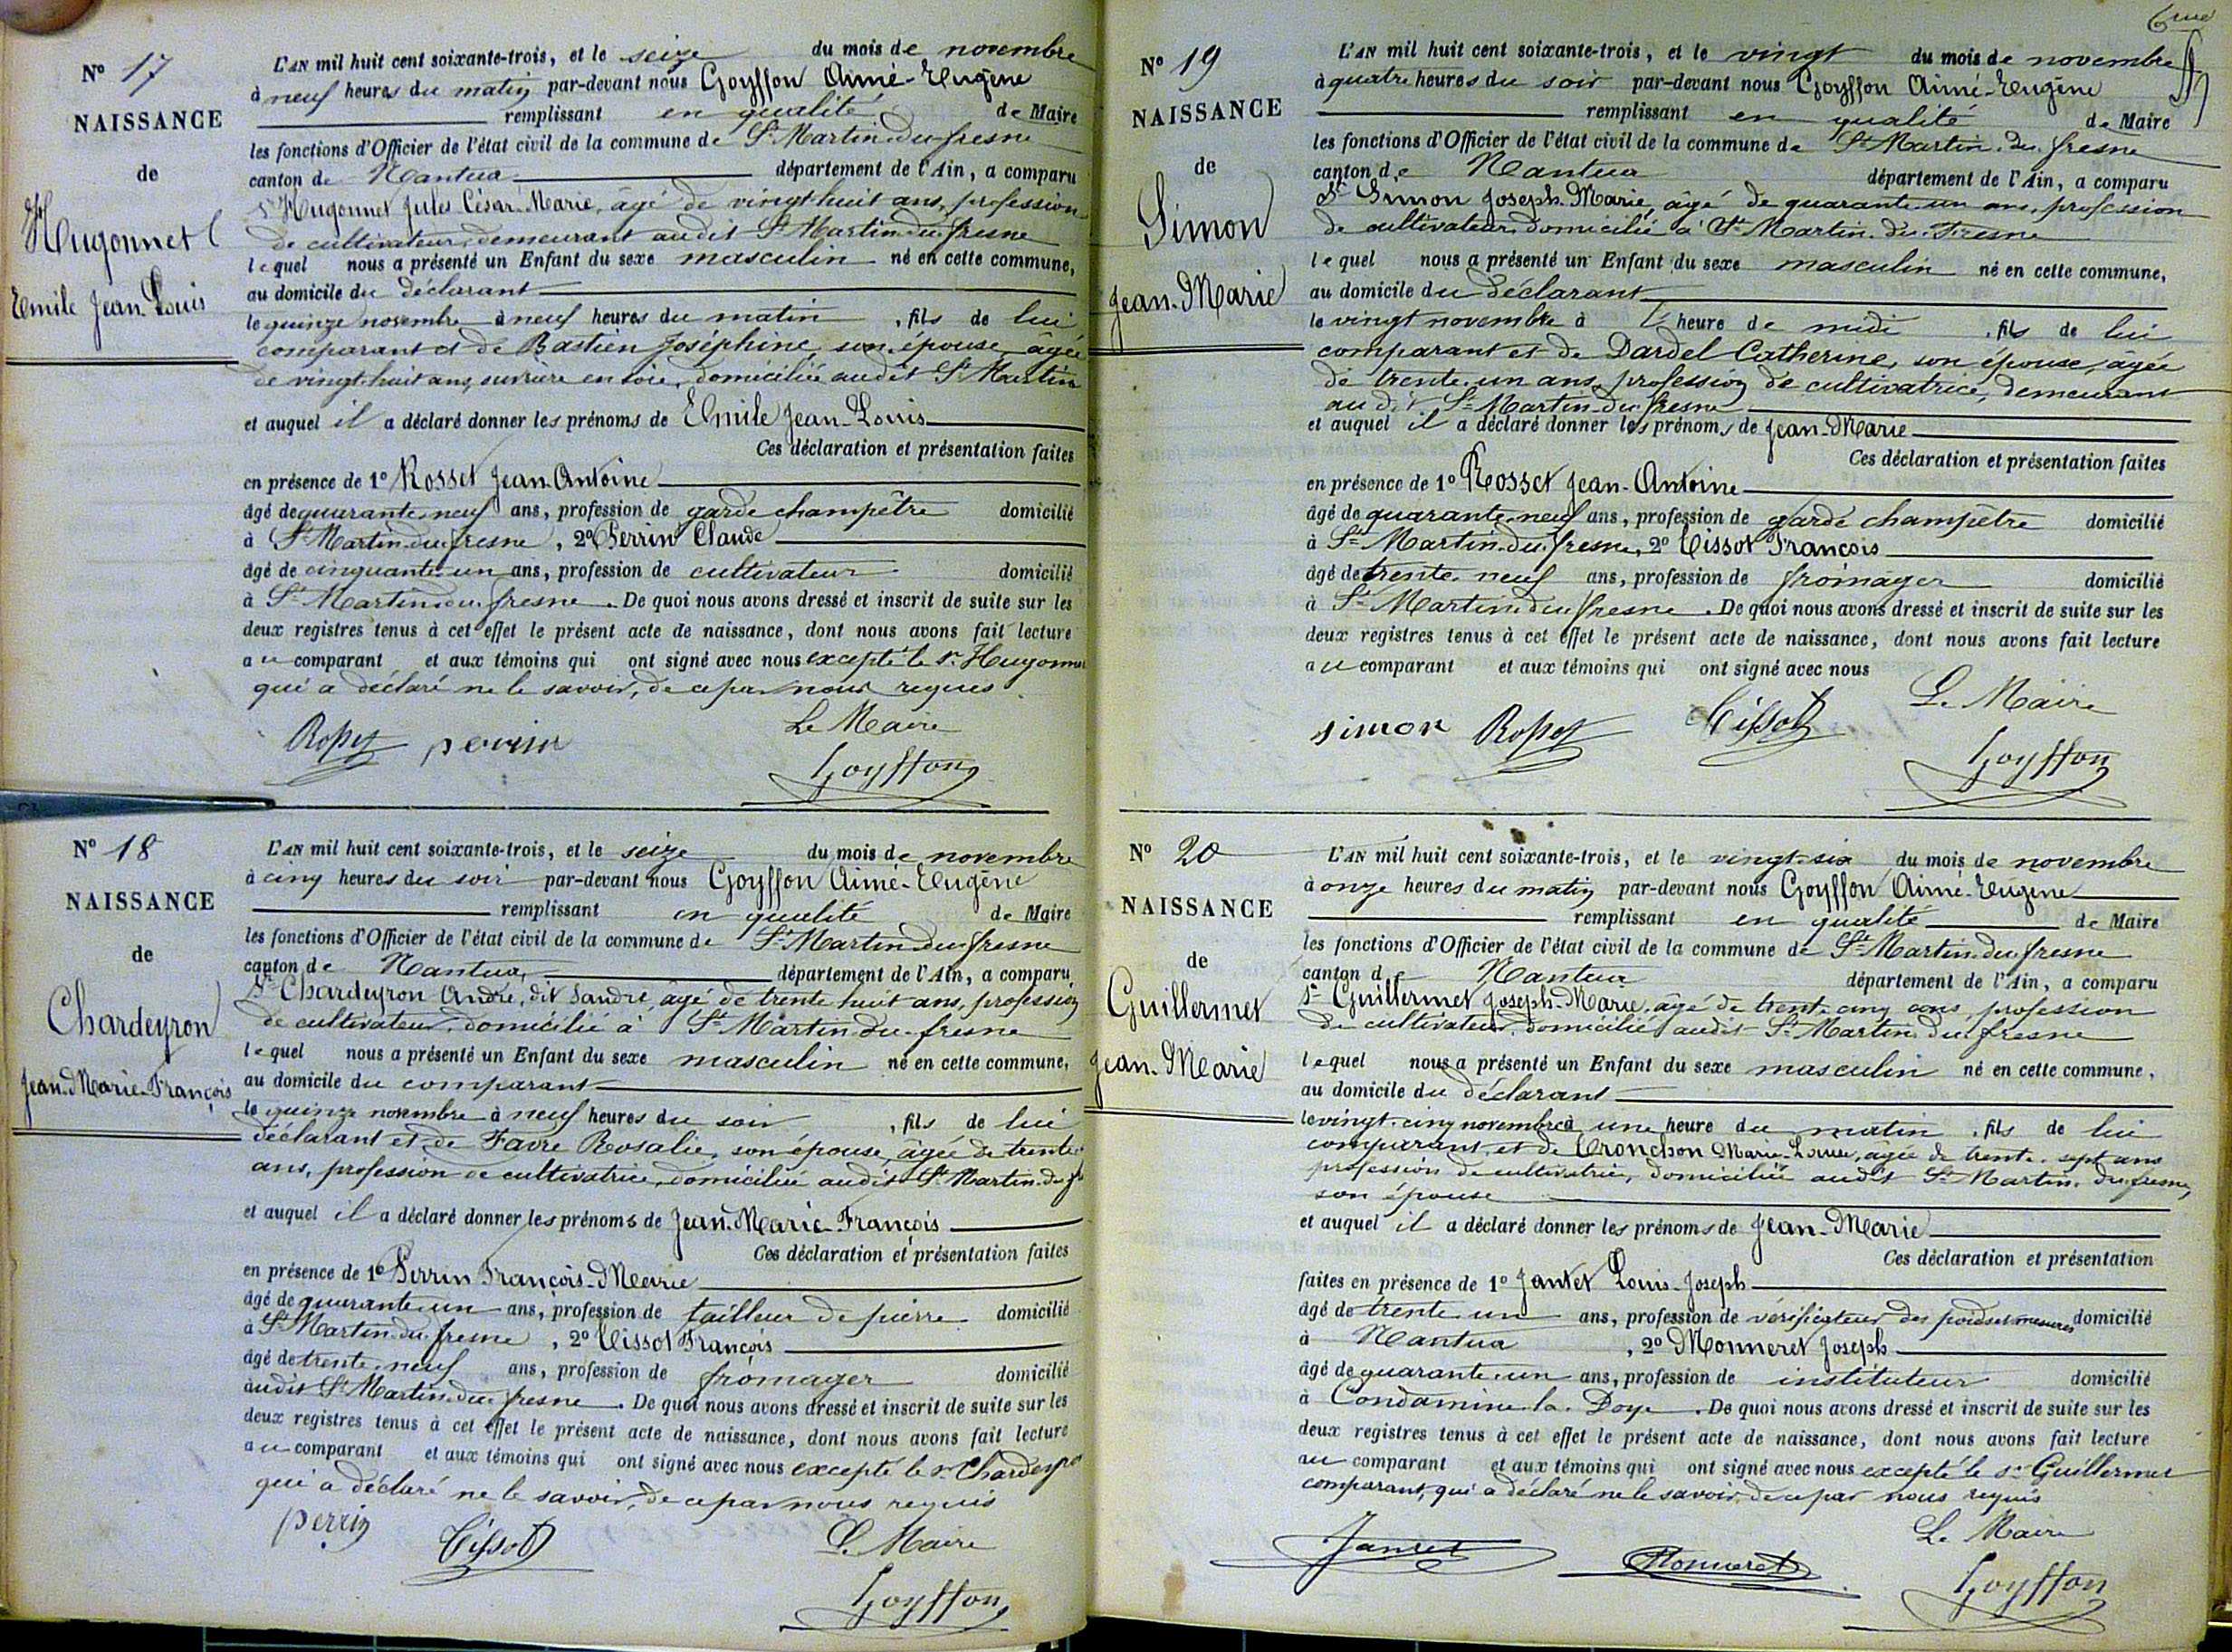 N° 17
NAISSANCE
de
Hugonnet
Emile Jean Louis
L'AN mil huit cent soixante-trois, et le seize du mois de novembre
à neuf heures du matin par-devant nous Goyffon Aimé-Eugène
remplissant en qualité de Maire
les fonctions d'Officier de l'état civil de la commune de St Martin-du-fresne
canton de Nantua département de l'Ain, a comparu
Sr Hugonnet Jules César Marie, âgé de vingt-huit ans, profession
de cultivateur, demeurant audit St Martin-du-fresne
lequel nous a présenté un Enfant du sexe masculin né en cette commune,
au domicile du déclarant
le quinze novembre à neuf heures du matin, fils de lui
comparant et de Bastien Joséphine, son épouse, âgée
de vingt-huit ans, ouvrière en soie, domiciliée audit St Martin
et auquel il a déclaré donner les prénoms de Emile Jean-Louis
Ces déclaration et présentation faites
en présence de 1° Rosset Jean-Antoine
âgé de quarante-neuf ans, profession de garde champêtre domicilié
à St Martin-du-fresne, 2° Perrin Claude
âgé de cinquante-un ans, profession de cultivateur domicilié
à St Martin-du-fresne. De quoi nous avons dressé et inscrit de suite sur les
deux registres tenus à cet effet le présent acte de naissance, dont nous avons fait lecture
au comparant et aux témoins qui ont signé avec nous excepté le sr Hugonnet
qui a déclaré ne le savoir, de ce par nous requis
Le Maire
Rosset perrin
Goyffon
N° 18
NAISSANCE
de
Chardeyron
Jean-Marie-François
L'AN mil huit cent soixante-trois, et le seize du mois de novembre
à cinq heures du soir par-devant nous Goyffon Aimé-Eugène
remplissant en qualité de Maire
les fonctions d'Officier de l'état civil de la commune de St Martin-du-fresne
canton de Nantua, département de l'Ain, a comparu
Sr Chardeyron André, dit Sandre, âgé de trente huit ans, profession
de cultivateur, domicilié à St Martin-du-fresne
lequel nous a présenté un Enfant du sexe masculin né en cette commune,
au domicile du comparant
le quinze novembre à neuf heures du soir, fils de lui
déclarant et de Favre Rosalie, son épouse, âgée de trente
ans, profession de cultivatrice, domiciliée audit St Martin-du-f
et auquel il a déclaré donner les prénoms de Jean-Marie-François
Ces déclaration et présentation faites
en présence de 1° Perrin François-Marie
âgé de quarante-un ans, profession de tailleur de pierre domicilié
à St Martin-du-fresne, 2° Tissot François
âgé de trente-neuf ans, profession de fromager domicilié
audit St Martin-du-fresne. De quoi nous avons dressé et inscrit de suite sur les
deux registres tenus à cet effet le présent acte de naissance, dont nous avons fait lecture
au comparant et aux témoins qui ont signé avec nous excepté le sr Chardeyron
qui a déclaré ne le savoir, de ce par nous requis
perrin Tissot L. Maire
Goyffon
6me
N° 19
NAISSANCE
de
Simon
Jean-Marie
L'AN mil huit cent soixante-trois, et le vingt du mois de novembre
à quatre heures du soir par-devant nous Goyffon Aimé-Eugène
remplissant en qualité de Maire
les fonctions d'Officier de l'état civil de la commune de St Martin-du-fresne
canton de Nantua département de l'Ain, a comparu
Sr Simon Joseph-Marie, âgé de quarante un ans, profession
de cultivateur, domicilié à St Martin-du-Fresne
lequel nous a présenté un Enfant du sexe masculin né en cette commune,
au domicile du déclarant
le vingt novembre à l' heure de midi, fils de lui
comparant et de Dardel Catherine, son épouse, âgée
de trente-un ans, profession de cultivatrice, demeurant
au dit St Martin-du-fresne
et auquel il a déclaré donner les prénoms de Jean-Marie
Ces déclaration et présentation faites
en présence de 1° Rosset Jean-Antoine
âgé de quarante-neuf ans, profession de garde champêtre domicilié
à St Martin-du-fresne, 2° Tissot François
âgé de trente-neuf ans, profession de fromager domicilié
à St Martin-du-fresne. De quoi nous avons dressé et inscrit de suite sur les
deux registres tenus à cet effet le présent acte de naissance, dont nous avons fait lecture
au comparant et aux témoins qui ont signé avec nous
L. Maire
simon Rosset Tissot
Goyffon
N° 20
NAISSANCE
de
Guillermet
Jean-Marie
L'AN mil huit cent soixante-trois, et le vingt-six du mois de novembre
à onze heures du matin par-devant nous Goyffon Aimé-Eugène
remplissant en qualité de Maire
les fonctions d'Officier de l'état civil de la commune de St Martin-du-fresne
canton de Nantua département de l'Ain, a comparu
Sr Guillermet Joseph-Marie, âgé de trente-cinq ans, profession
de cultivateur, domicilié audit St Martin-du-fresne
lequel nous a présenté un Enfant du sexe masculin né en cette commune,
au domicile du déclarant
le vingt-cinq novembre à une heure du matin, fils de lui
comparant, et de Tronchon Marie-Louise, âgée de trente-sept ans
profession de cultivatrice, domiciliée audit St Martin-du-fresne,
son épouse
et auquel il a déclaré donner les prénoms de Jean-Marie
Ces déclaration et présentation
faites en présence de 1° Jantet Louis-Joseph
âgé de trente-un ans, profession de vérificateur des poids et mesures domicilié
à Nantua, 2° Monneret Joseph
âgé de quarante-un ans, profession de instituteur domicilié
à Condamine-la-Doye. De quoi nous avons dressé et inscrit de suite sur les
deux registres tenus à cet effet le présent acte de naissance, dont nous avons fait lecture
au comparant et aux témoins qui ont signé avec nous excepté le sr Guillermet
comparant, qui a déclaré ne le savoir, de ce par nous requis
Le Maire
Jantet Monneret
Goyffon